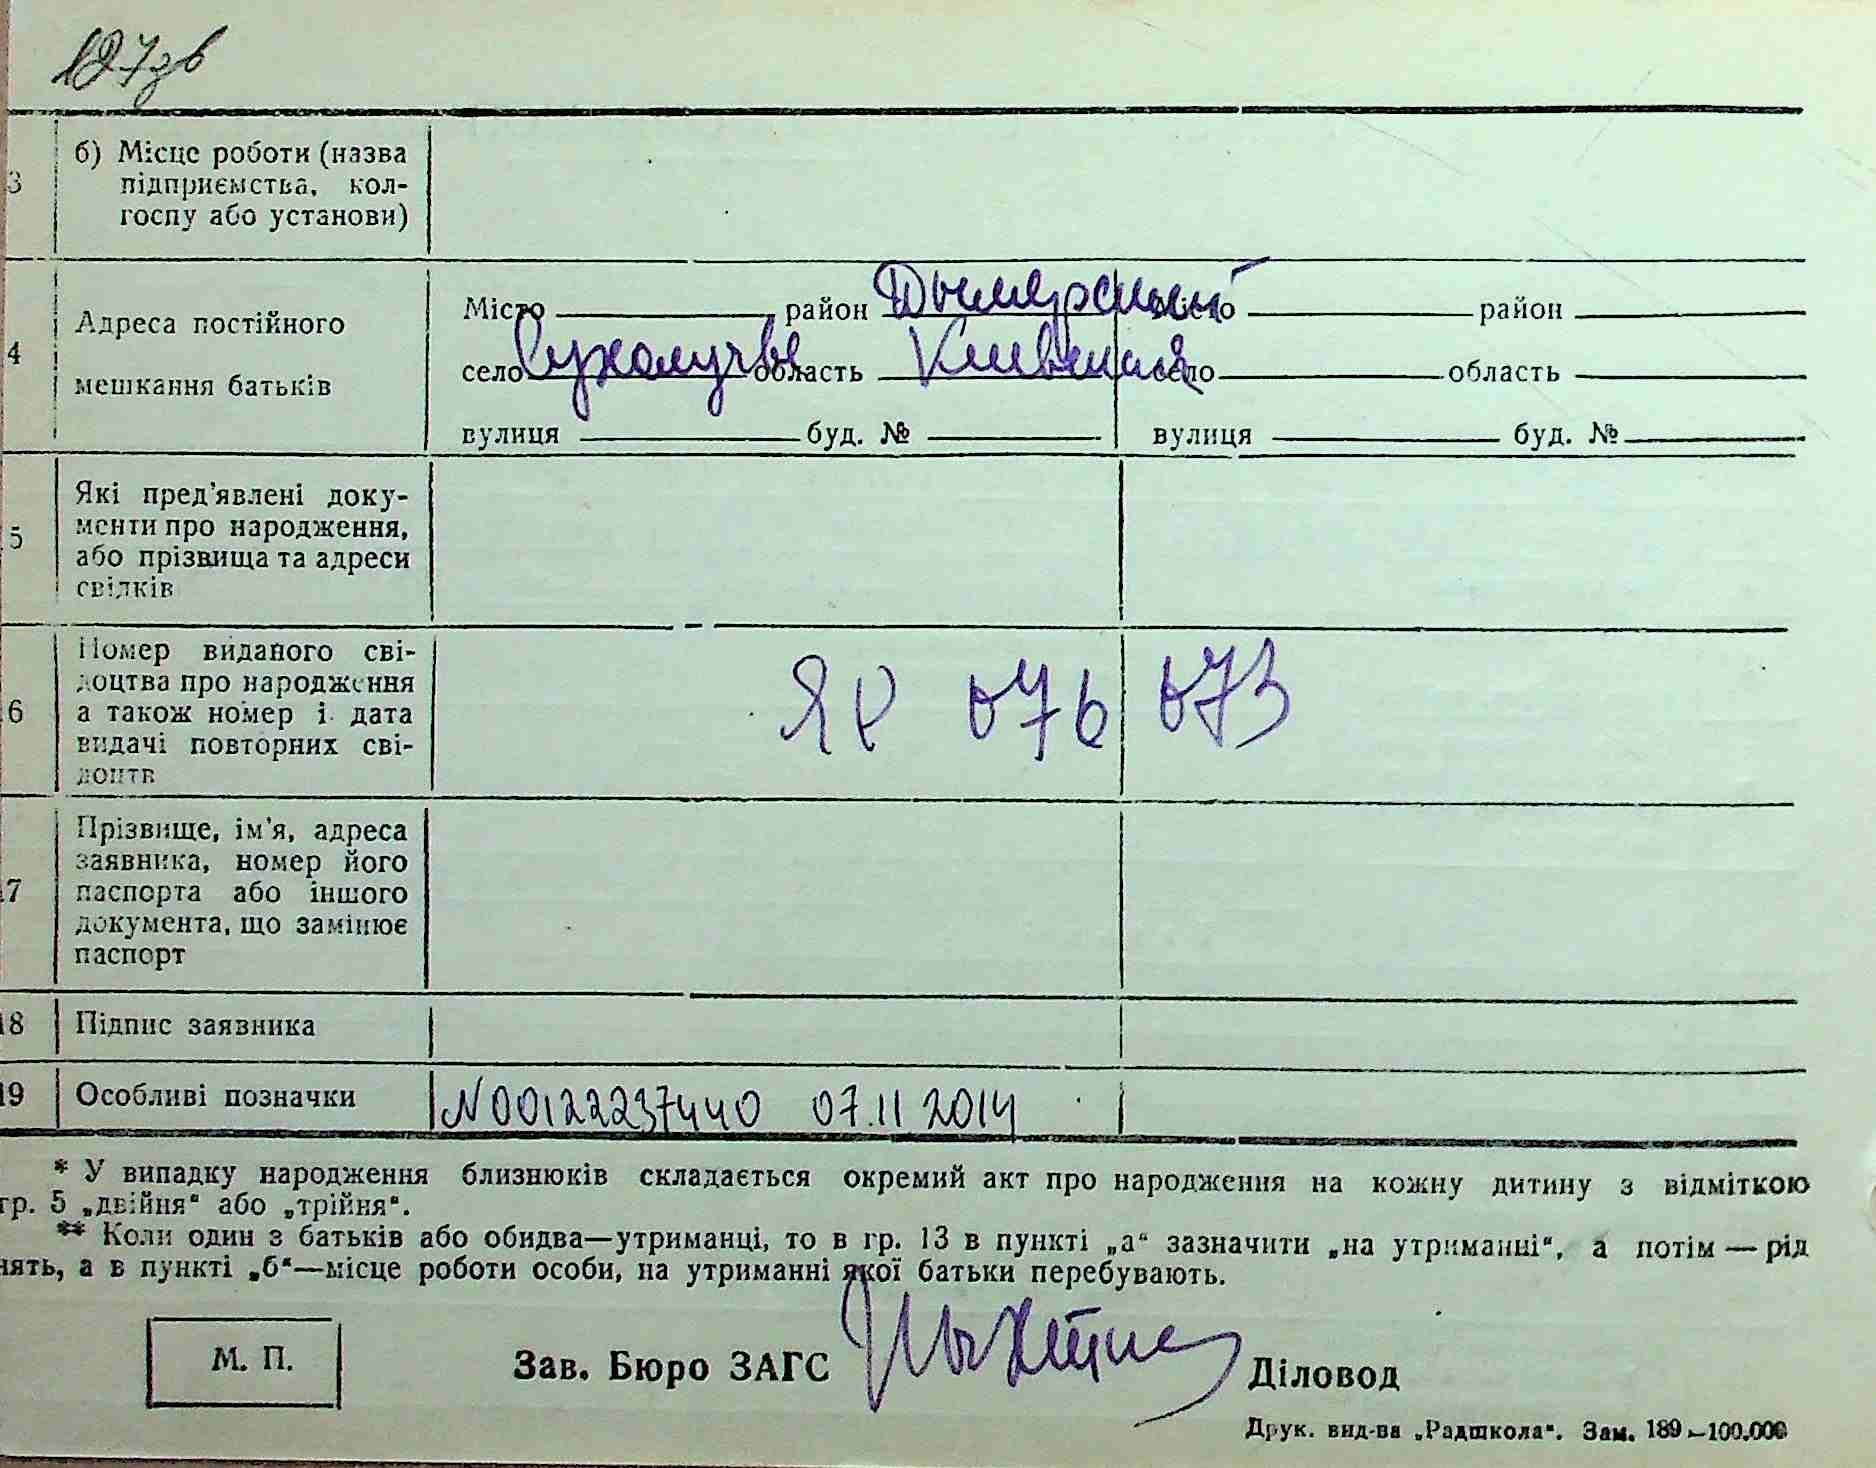 127зв
3 б) Місце роботи (назва
підприємства, кол-
госпу або установи)
4 Адреса постійного
мешкання батьків
Місто район Дымерский Місто район
село Сухолучье область Киевская село область
вулиця буд. № вулиця буд. №
5 Які пред'явлені доку-
менти про народження,
або прізвища та адреси
свідків
6 Номер виданого сві-
доцтва про народження
а також номер і дата
видачі повторних сві-
доцтв
076 073
7 Прізвище, ім'я, адреса
заявника, номер його
паспорта або іншого
документа, що замінює
паспорт
18 Підпис заявника
19 Особливі позначки N00122237440 07.11 2014
* У випадку народження близнюків складається окремий акт про народження на кожну дитину з відміткою
гр. 5 „двійня“ або „трійня“.
** Коли один з батьків або обидва—утриманці, то в гр. 13 в пункті „а“ зазначити „на утриманні“, а потім — рід
нять, а в пункті „б“—місце роботи особи, на утриманні якої батьки перебувають.
М. П.
Зав. Бюро ЗАГС Діловод
Друк. вид-ва „Радшкола“. Зам. 189—100.000